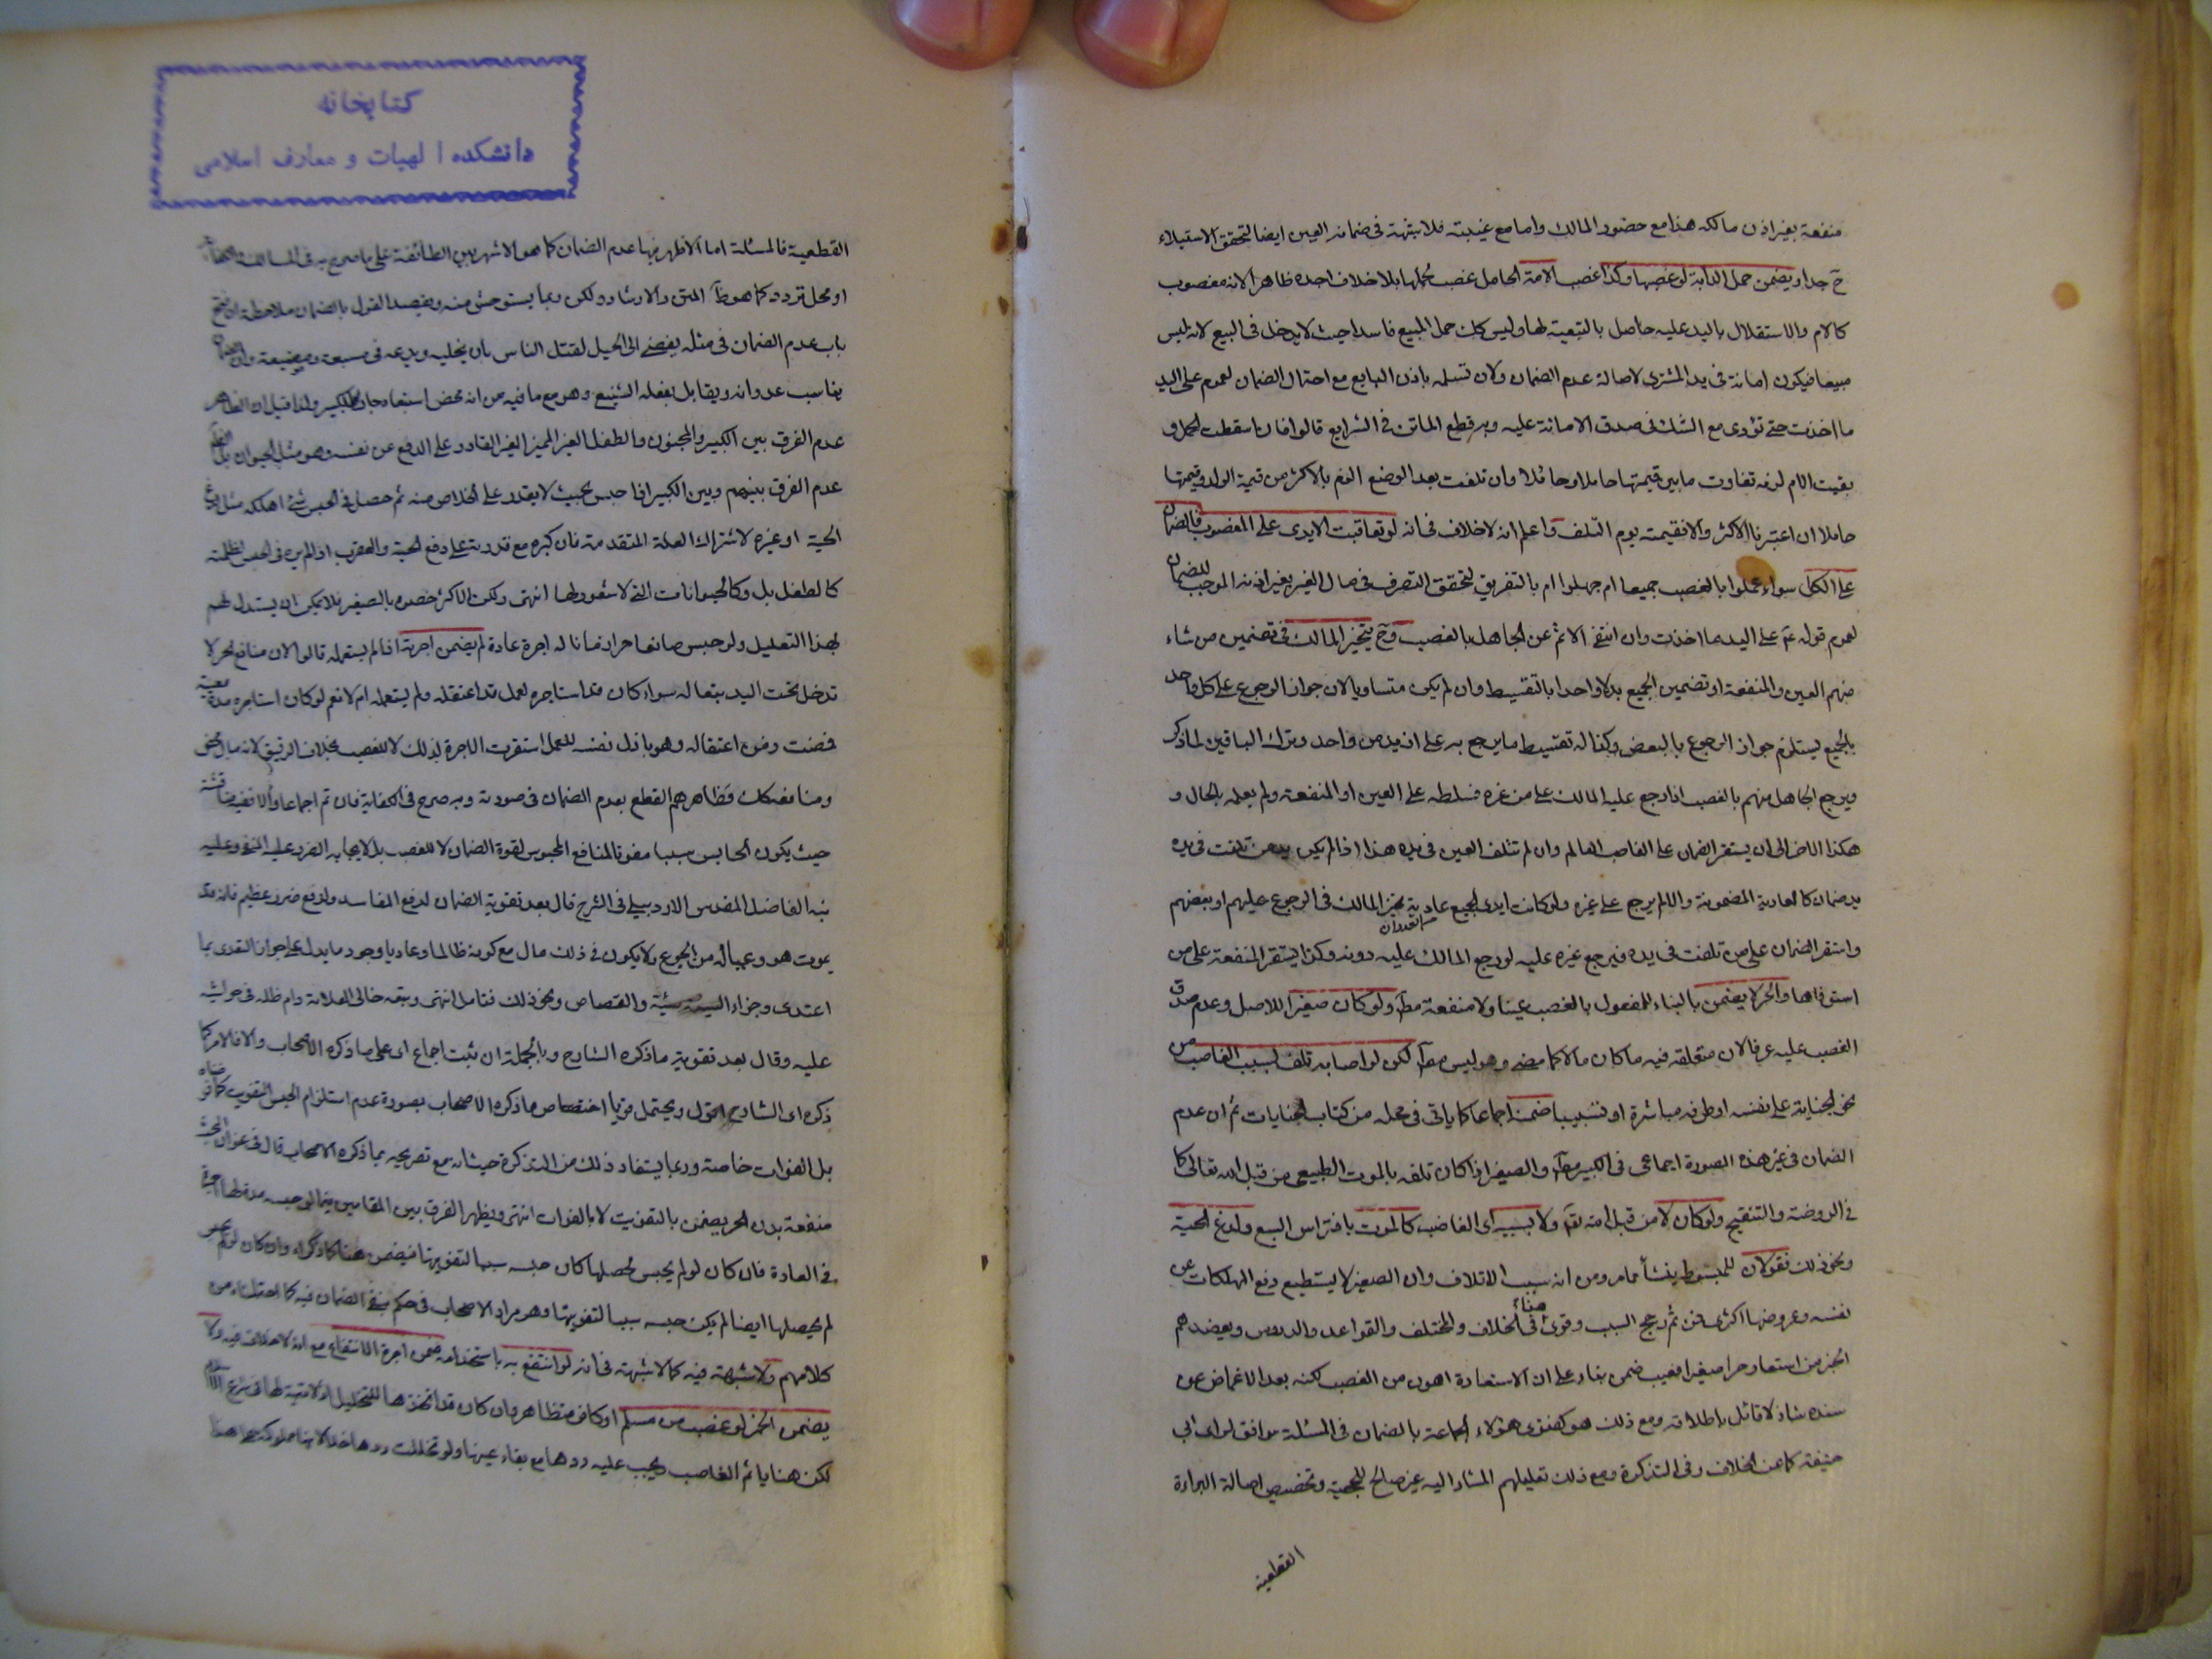 منفعة بغير اذن مالكه هذا مع حضور المالك واما مع غيبته فلا شبهة في ضمانه العين ايضا لتحقق الاستيلاء
ح جدا ويضمن حمل الدابة لو غصبها وكذا غصب الامة الحامل غصب لحملها بلا خلاف اجده ظاهرا لانه مغصوب
كالام والاستقلال باليد عليه حاصل بالتبعية لها وليس كك حمل المبيع فاسدا حيث لا يدخل في البيع لانه ليس
مبيعا فيكون امانة في يد المشتري لاصالة عدم الضمان ولان تسلمه باذن البايع مع احتمال الضمان لعموم على اليد
ما اخذت حتى تؤدى مع الشك في صدق الامانة عليه وبه قطع الماتن في الشرايع قالوا فان اسقطت الحمل و
بقيت الام لزمه تفاوت ما بين قيمتها حاملا وحائلا وان تلفت بعد الوضع الزم بالاكثر من قيمة الولد وقيمتها
حاملا ان اعتبرنا الاكثر والا فقيمته يوم التلف واعلم انه لا خلاف في انه لو تعاقبت الايدى على المغصوب فالضمان
على الكل سواء عملوا بالغصب جميعا ام جهلوا ام بالتفريق لتحقق التصرف في مال الغير بغير اذنه الموجب للضمان
لعموم قوله ع على اليد ما اخذت وان انتفى الاثم عن الجاهل بالغصب و ح يتخير المالك في تضمين من شاء
منهم العين والمنفعة او تضمين الجميع بدلا واحدا بالتقسيط وان لم يكن متساويا لان جواز الرجوع على كل واحد
بالجميع يستلزم جواز الرجوع بالبعض وكذا له تقسيط ما يرجع به على ازيد من واحد وترك الباقين لما ذكر
ويرجع الجاهل منهم بالغصب اذا رجع عليه المالك على من غره فسلطه على العين او المنفعة ولم يعلمه بالحال و
هكذا الاخر الى ان يستقر الضمان على الغاصب العالم وان لم تتلف العين في يده هذا اذا لم يكن يد من تلفت في يده
يد ضمان كالعارية المضمونة والا لم يرجع على غيره ولو كانت ايدى الجميع عادية تخير المالك في الرجوع عليهم او بعضهم
واستقر الضمان على من تلفت في يده فيرجع غيره عليه لو رجع المالك عليه دونه وكذا يستقر المنفعة على من
استوفاها والحر لا يضمن بالبناء للمفعول بالغصب عينا ولا منفعة مط ولو كان صغيرا للاصل وعدم صدق
الغصب عليه عرفا لان متعلقه فيه ما كان مالا كما مضى وهو ليس مط لكن لو اصابه تلف بسبب الغاصب من
نحو الجناية على نفسه او طرفه مباشرة او تسبيبا ضمنه اجماعا كما ياتي في محله من كتاب الجنايات ثم ان عدم
الضمان في غير هذه الصورة اجماعي في الكبير مط والصغير اذا كان تلفه بالموت الطبيعي من قبل الله تعالى كما
في الروضة والتنقيح ولو كان لا من قبل الله تعالى ولا بسبب اى الغاصب كالموت بافتراس السبع ولدغ الحية
ونحو ذلك فقولان للمبسوط ينشأ مما مر ومن انه سبب الاتلاف وان الصغير لا يستطيع دفع المهلكات عن
نفسه وعروضها اكثرى فمن ثم رجح السبب وقوى هنا في الخلاف والمختلف والقواعد والدروس ويعضدهم
الخبر من استعار حرا صغيرا فعيب ضمن بناء على ان الاستعارة اهون من الغصب لكنه بعد الاغماض عن
سنده شاذ لا قائل باطلاقه ومع ذلك هو كفتوى هؤلاء الجماعة بالضمان في المسئلة موافق لراى ابي
حنيفة كما عن الخلاف وفي التذكرة ومع ذلك تعليلهم المشار اليه غير صالح للحجية وتخصيص اصالة البراءة
القطعية
كتابخانه
دانشكده الهيات و معارف اسلامى
القطعية فالمسئلة اما الاظهر فيها عدم الضمان كما هو الاشهر بين الطائفة على ما صرح به في المسالك
او محل تردد كما هو ظ المتن والارشاد ولكن ربما يستوحش منه ويقصد القول بالضمان ملاحظة ان فتح
باب عدم الضمان في مثله يفضى الى الحيل لقتل الناس بان يخليه ويدعه في مسبعة ومضيعة وان الضمان
يناسب عدوانه ويقابل بفعله الشنيع وهو مع ما فيه من انه محض استبعاد جار في الكبير ولذا قيل ان الظاهر
عدم الفرق بين الكبير والمجنون والطفل الغير المميز الغير القادر على الدفع عن نفسه وهو مثل الحيوان بل
عدم الفرق بينهم وبين الكبير اذا حبس بحيث لا يقدر على الخلاص منه ثم حصل في الحبس شئ اهلكه مثل لدغ
الحية او غيره لاشتراك العلة المتقدمة فان كبره مع قدرته على دفع الحية والعقرب اذا لم يره في الحبس لظلمته
كالطفل بل وكالحيوانات التي لا شعور لها انتهى ولكن الاكثر خصوه بالصغير فلا يمكن ان يستدل لهم
بهذا التعليل ولو حبس صانعا حرا زمانا له اجرة عادة لم يضمن اجرته اذا لم يستعمله قالوا لان منافع الحر لا
تدخل تحت اليد تبعا له سواء كان قد استاجره لعمل قد اعتقله ولم يستعمله ام لا نعم لو كان استاجره مدة معينة
فمضت زمن اعتقاله وهو باذل نفسه للعمل استقرت الاجرة لذلك لا للغصب بخلاف الرقيق لانه مال محض
ومنافعه كك وظاهرهم القطع بعدم الضمان في صورته وبه صرح في الكفاية فان تم اجماعا والا ففيه مناقشة
حيث يكون الحابس سببا مفوتا لمنافع المحبوس لقوة الضمان لا للغصب بل لايجابه الضرر عليه المنفى وعليه
نبه الفاضل المقدس الاردبيلي في الشرح قال بعد تقوية الضمان لدفع المفاسد ولدفع ضرر عظيم فانه قد
يموت هو وعياله من الجوع ولا يكون في ذلك مال مع كونه ظالما وعاديا وجود ما يدل على جواز التعدى بما
اعتدى وجزاء السيئة سيئة والقصاص ونحو ذلك فتامل انتهى وتبعه خالى العلامة دام ظله في حواشيه
عليه وقال بعد تقوية ما ذكره الشارح وبالجملة ان ثبت اجماع اى على ما ذكره الاصحاب والا فالامر كما
ذكره اى الشارح اقول ويحتمل قويا اختصاص ما ذكره الاصحاب بصورة عدم استلزام الحبس التفويت
بل الفوات خاصة وربما يستفاد ذلك من التذكرة حيث انه مع تصريحه بما ذكره الاصحاب قال في عنوان البحث
منفعة بدن الحر يضمن بالتفويت لا بالفوات انتهى ويظهر الفرق بين المقامين فيما لو حبسه مدة لها اجرة
في العادة فان كان لو لم يحبس لحصلها كان حبسه سببا لتفويتها فيضمن هنا كما ذكراه وان كان لو لم يحبس
لم يحصلها ايضا لم يكن حبسه سببا لتفويتها وهو مراد الاصحاب في حكمهم بنفى الضمان فيه كما احتملناه من
كلامهم ولا شبهة فيه كما لا شبهة في انه لو انتفع به باستخدامه ضمن اجرة الانتفاع مع انه لا خلاف فيه ولا
يضمن الخمر لو غصب من مسلم او كافر متظاهر وان كان قد اتخذها للتخليل اذ لا قيمة لها في شرع الاسلام
لكن هنا ياثم الغاصب ويجب عليه ردها مع بقاء عينها ولو تخللت ردها خلا لانها مملوكة على هذا